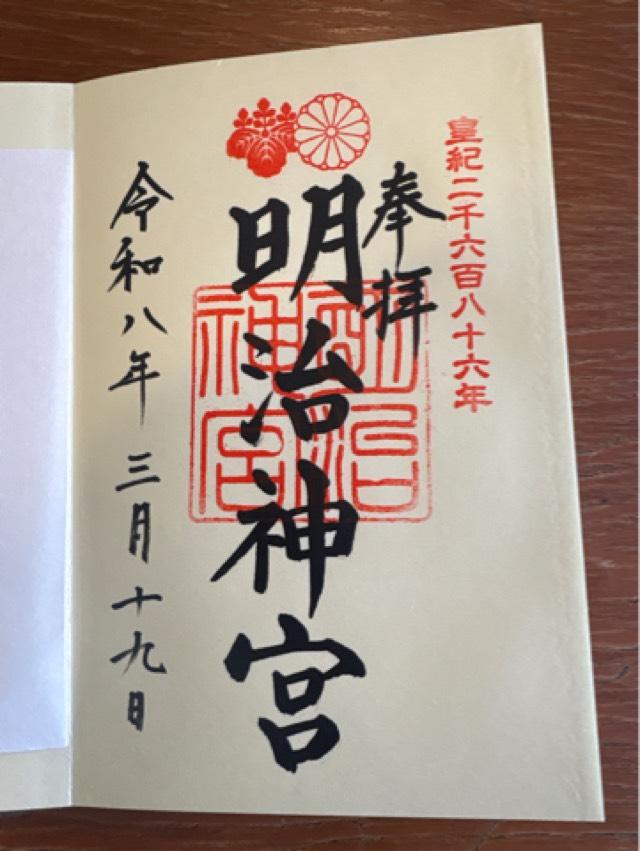 皇紀二千六百八十六年
奉拝
明治神宮
明治
神宮
令和八年三月十九日